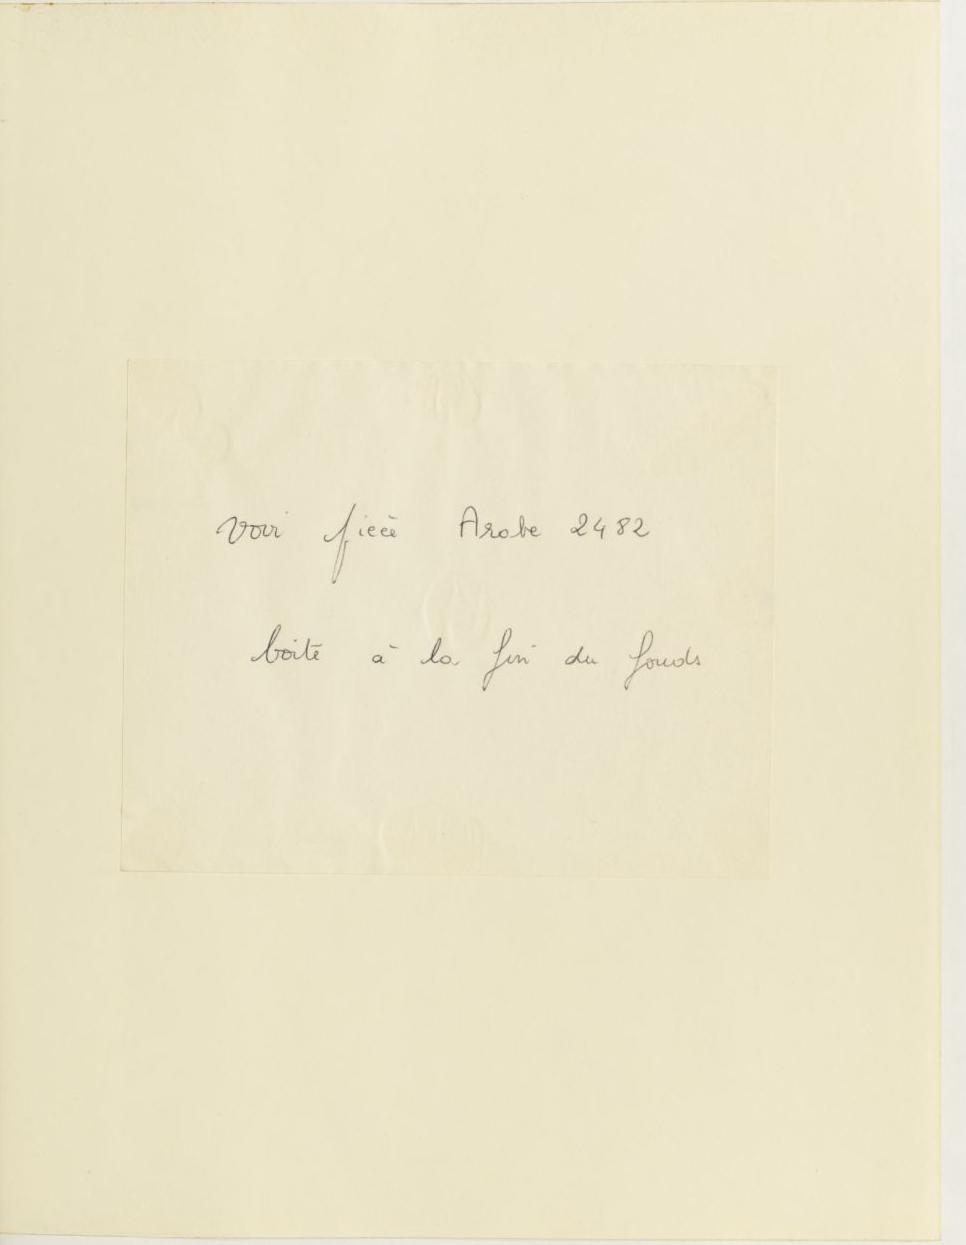 voir pièce Arabe 2482
boîte à la fin du fonds